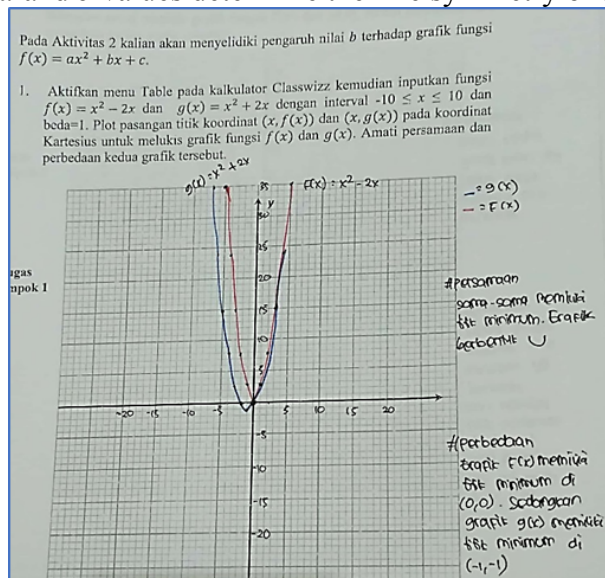 Pada Aktivitas 2 kalian akan menyelidiki pengaruh nilai b terhadap grafik fungsi
f(x) = ax² + bx + c.
1. Aktifkan menu Table pada kalkulator Classwizz kemudian inputkan fungsi
f(x) = x² − 2x dan g(x) = x² + 2x dengan interval -10 ≤ x ≤ 10 dan
beda=1. Plot pasangan titik koordinat (x, f(x)) dan (x, g(x)) pada koordinat
Kartesius untuk melukis grafik fungsi f(x) dan g(x). Amati persamaan dan
perbedaan kedua grafik tersebut.
g(x) = x² + 2x
F(x) = x² - 2x
= g(x)
= F(x)
35
y
30
25
20
15
10
5
-20 -15 -10 -5 5 10 15 20
-5
-10
-15
-20
ugas
mpok 1
#persamaan
sama-sama memiliki
titik minimum. Grafik
berbentuk U
#perbedaan
grafik F(x) memiliki
titik minimum di
(0,0). Sedangkan
grafik g(x) memiliki
titik minimum di
(-1,-1)